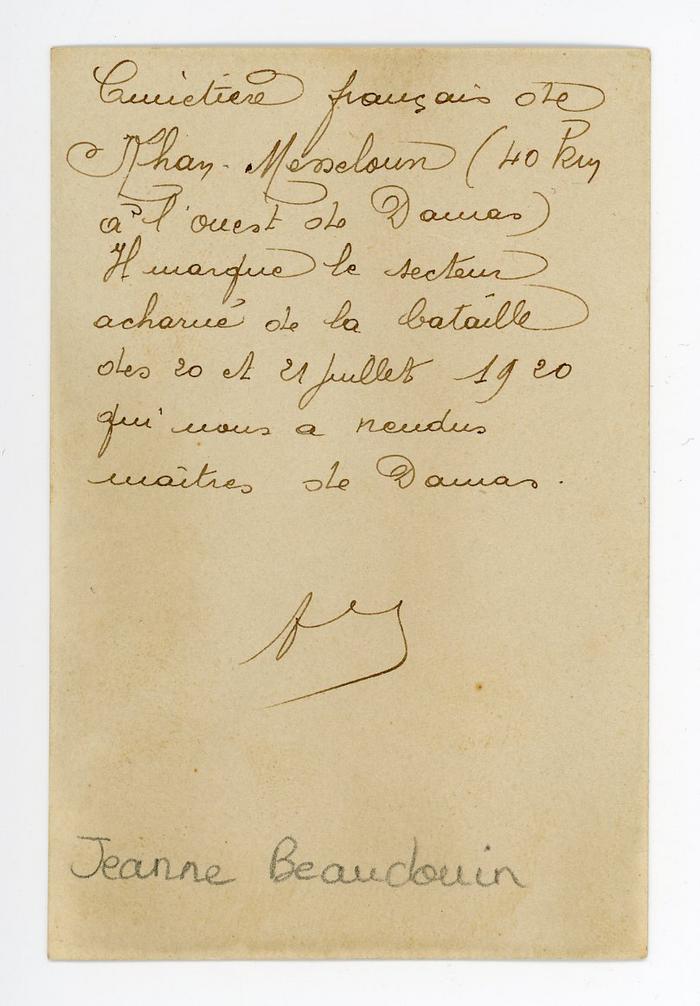 Cimetière français de
Khan-Messeloun (40 km
à l'ouest de Damas)
Il marque le secteur
acharné de la bataille
des 20 et 21 juillet 1920
qui nous a rendus
maîtres de Damas.
Jeanne Beaudouin